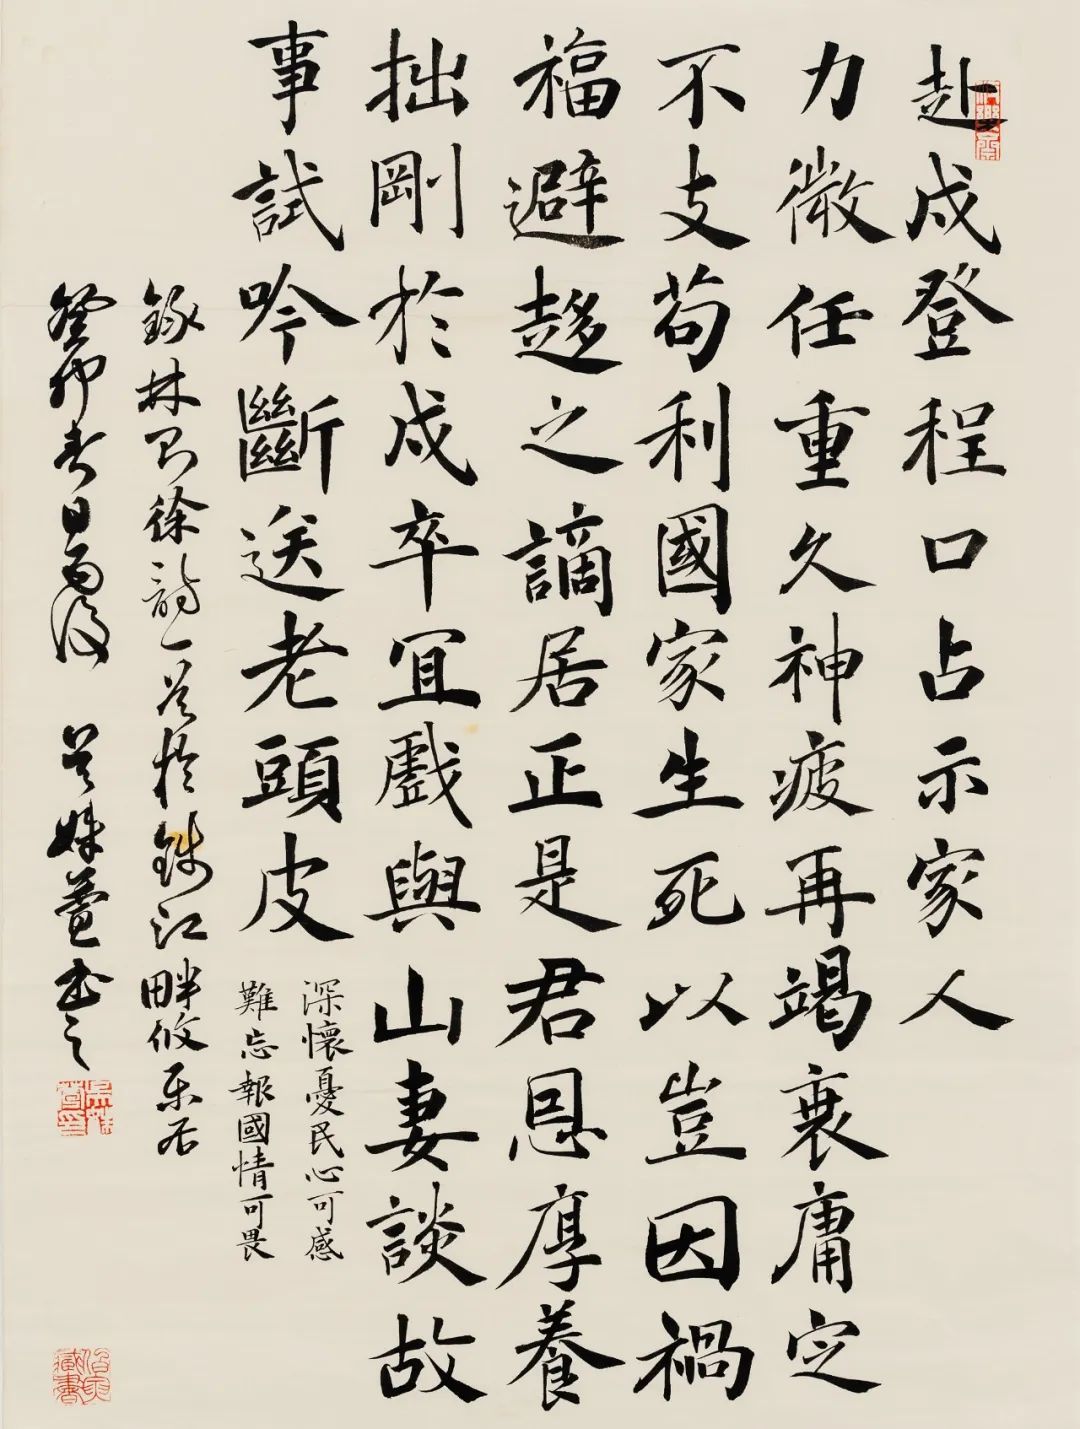 赴戍登程口占示家人
力微任重久神疲再竭衰庸定
不支苟利國家生死以豈因禍
福避趍之謫居正是君恩厚養
拙剛於戍卒冝戲與山妻談故
事試吟斷送老頭皮
深懷憂民心可感
難忘報國情可畏
錄林則徐詩一首於錢江畔攸乐居
癸卯春日雨後 吳姝萱書之